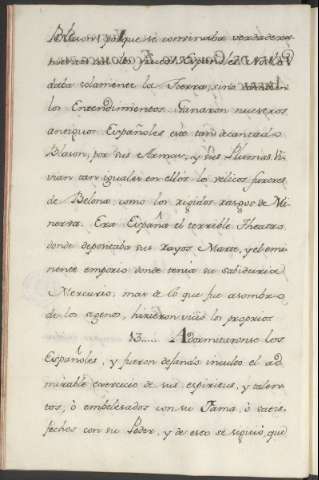 Blason, porque se construìa verdadera
mente
daba solamente la Tierra, sino
los Entendimientos. Ganaron nuestros
antiguos Españoles este tan decantado
Blason, por sus Armas, y sus Plumas. Vi
vian tan iguales en ellos lo velicos furores
de Belona como los rigidos rasgos de Mi
nerva. Era España el terrible Theatro
donde depositaba sus rayos Marte, y el emi
nente emporio donde tenia su sabiduria
Mercurio; mas de lo que fue asombro
de los agenos, hicieron vicio los proprios
13..... Adormecieronse los
Españoles, y fueron dejando inculto el ad
mirable exercicio de sus espiritus, y talen
tos, ò embelesados con su Fama, ò satis
fechos con su Poder, y de esto se siguiò, que